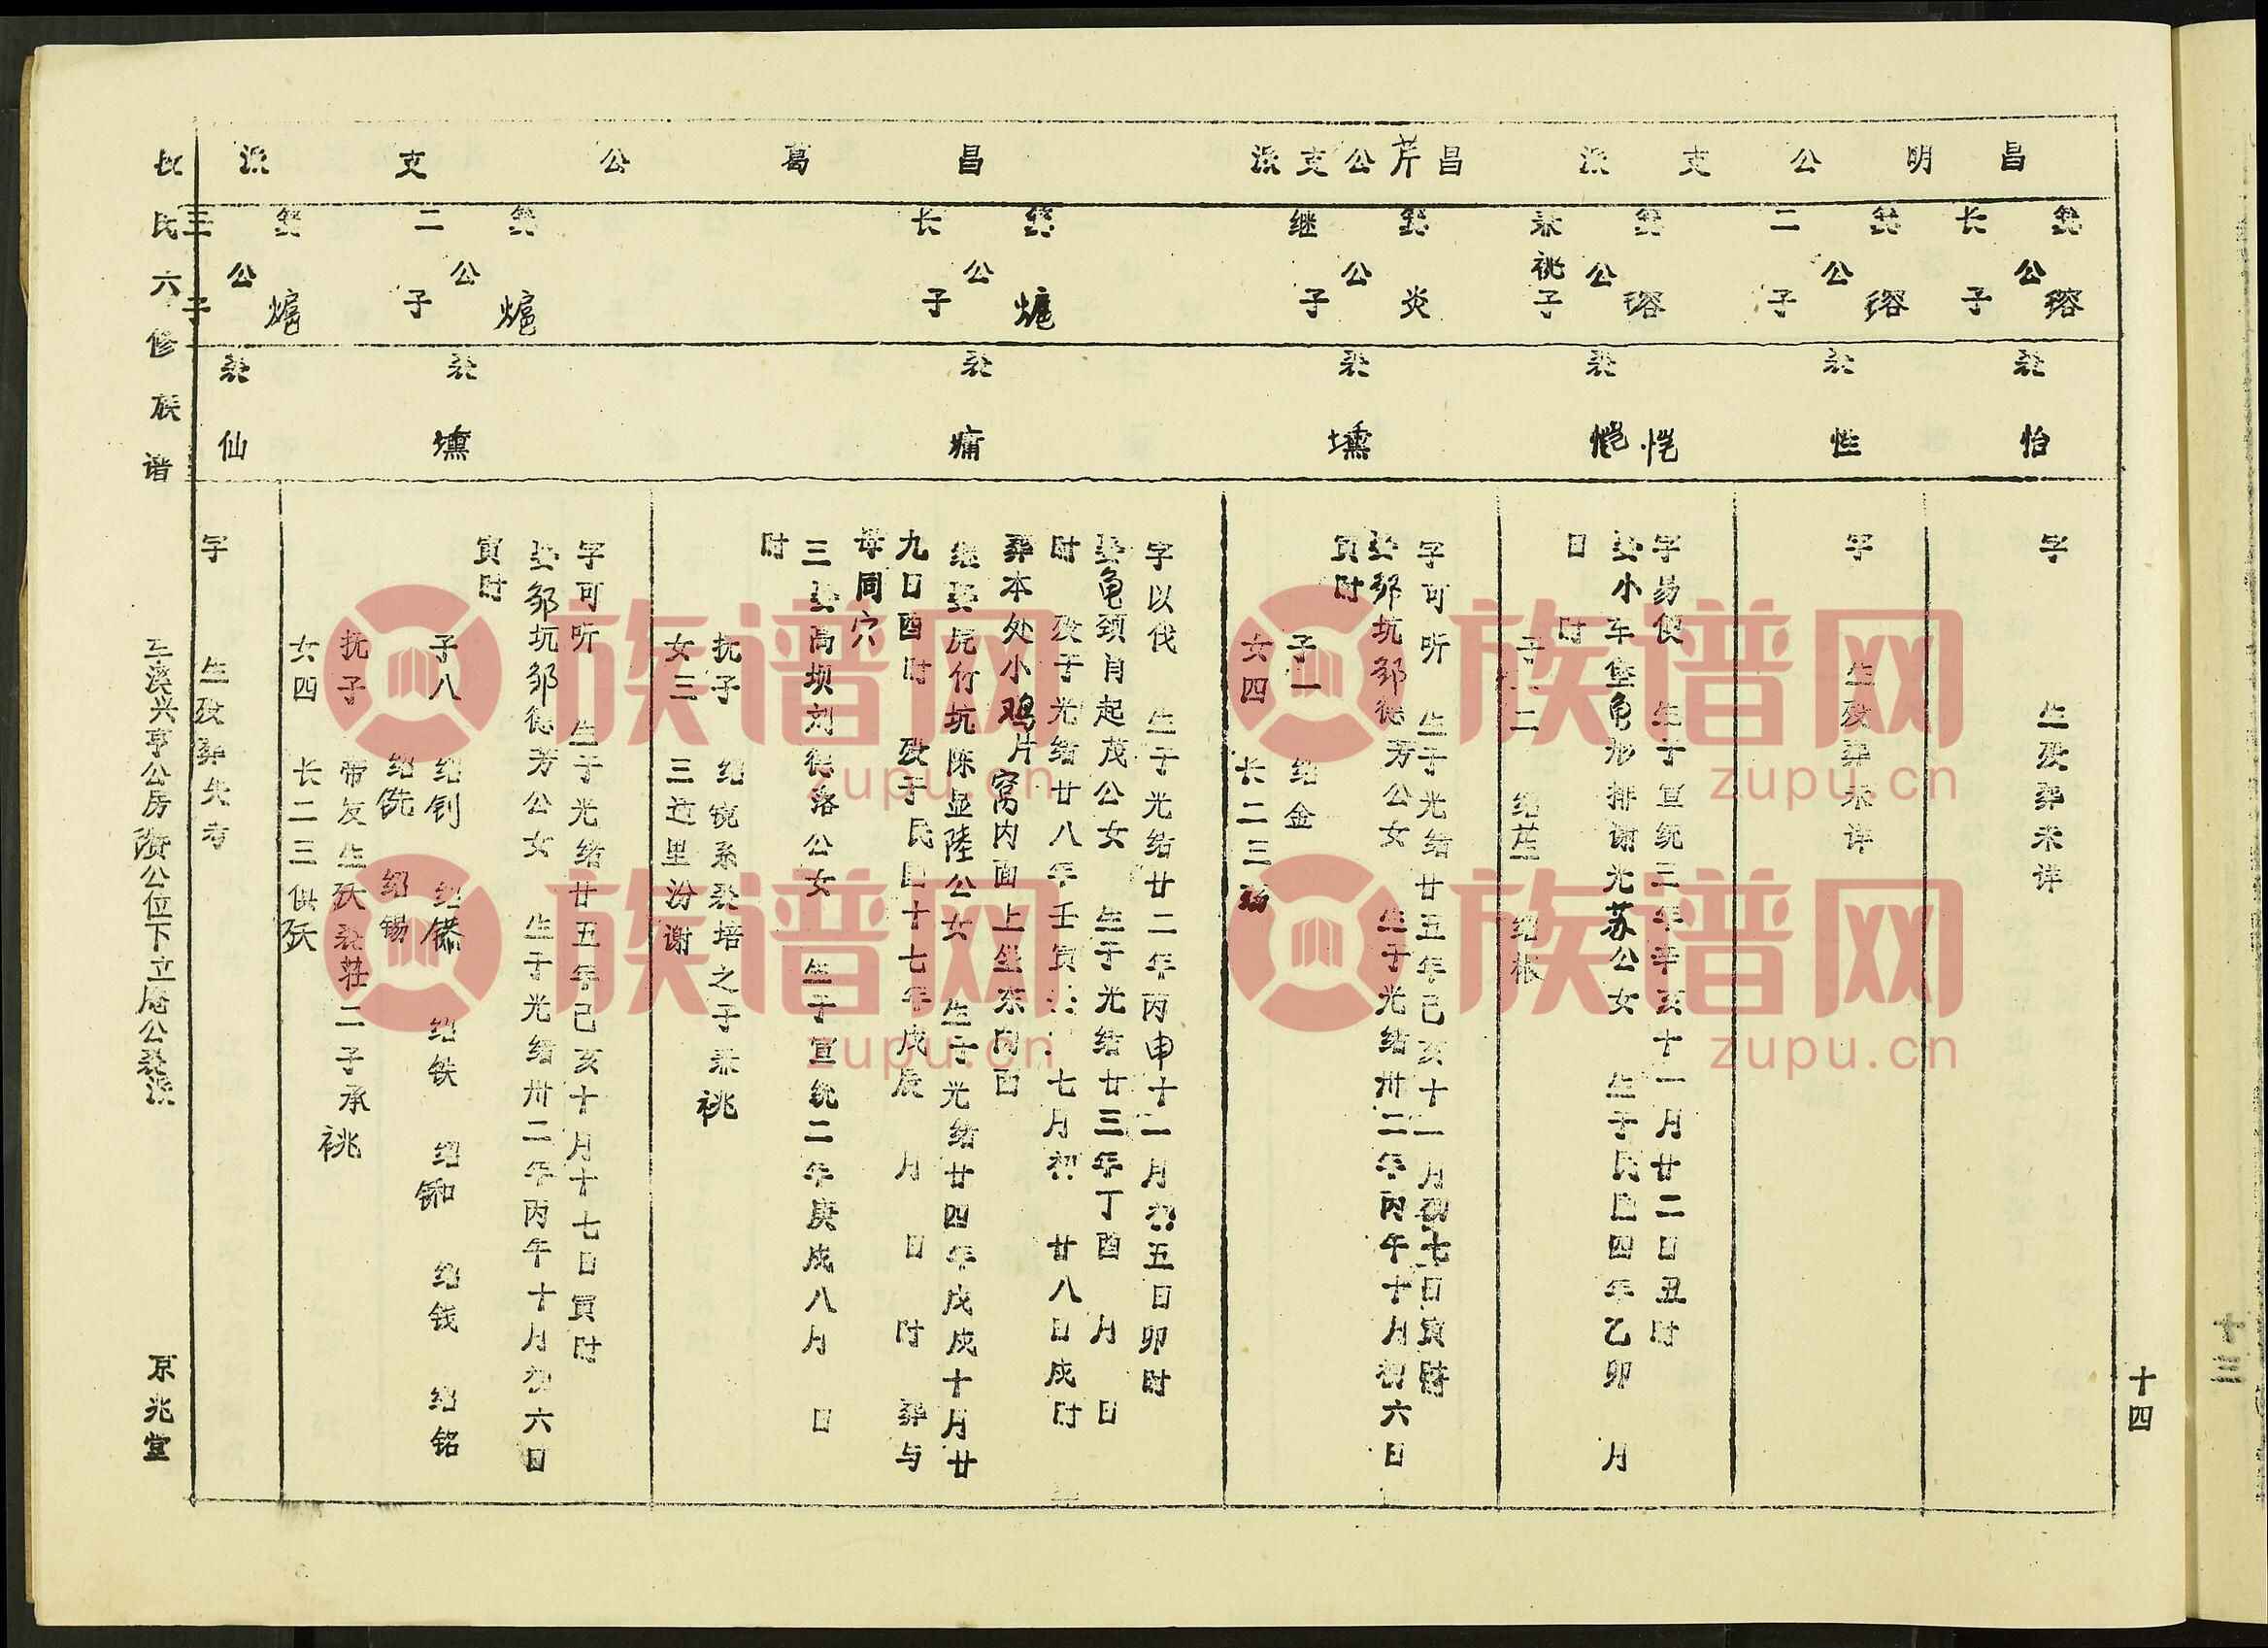 十四
昌明公支派
昌芹公支派
昌葛公支派
公瑢长子
怡
字 生殁葬未详
公瑢二子
性
字 生殁葬未详
公瑢承祧子
恺
字易便 生于宣统三年辛亥十一月廿二日丑时
小车堡龟形排谢光苏公女 生于民国四年乙卯 月
日 时
子二 绍芷 绍根
公炎继子
壎
字可听 生于光绪廿五年己亥十一月初七日寅时
娶邹坑邹德芳公女 生于光绪卅二年丙午十月初六日
寅时
子一 绍金
女四 长二三殇
长子
字以伐 生于光绪廿二年丙申十二月初五日卯时
娶龟颈肖起茂公女 生于光绪廿三年丁酉 月 日
时 殁于光绪廿八年壬寅 七月初 廿八日戌时
葬本处小鸡片窝内面上坐东向酉
继娶虎竹坑陈显陆公女 生于光绪廿四年戊戌十月廿
九日酉时 殁于民国十七年戊辰 月 日 时 葬与
母同穴
三娶高坝刘德洛公女 生于宣统二年庚戌八月 日
时
抚子 绍锐系 培之子承祧
女三 三适里汾谢
二子
壎
字可听 生于光绪廿五年己亥十月十七日寅时
娶邹坑邹德芳公女 生于光绪卅二年丙午十月初六日
寅时
子八 绍钊 绍 绍铁 绍钾 绍钱 绍铭
绍铣 绍锡
抚子 带友生殀 荘二子承祧
女四 长二三俱殀
三子
仙
字 生殁葬失考
氏六修族谱
溪兴亨公房 公位下立庵公 派
京兆堂
十三
族谱网
zupu.cn
族谱网
zupu.cn
族谱网
zupu.cn
族谱网
zupu.cn